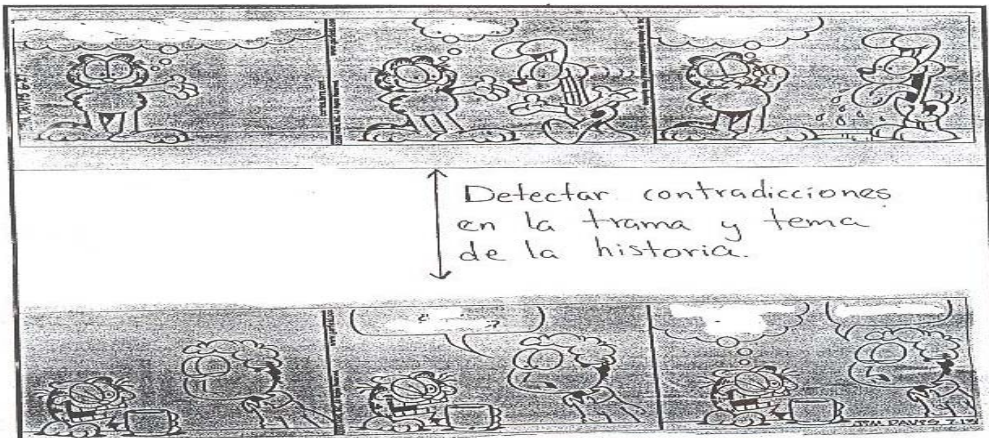 Detectar contradicciones
en la trama y tema
de la historia.
JIM DAVIS 7.19